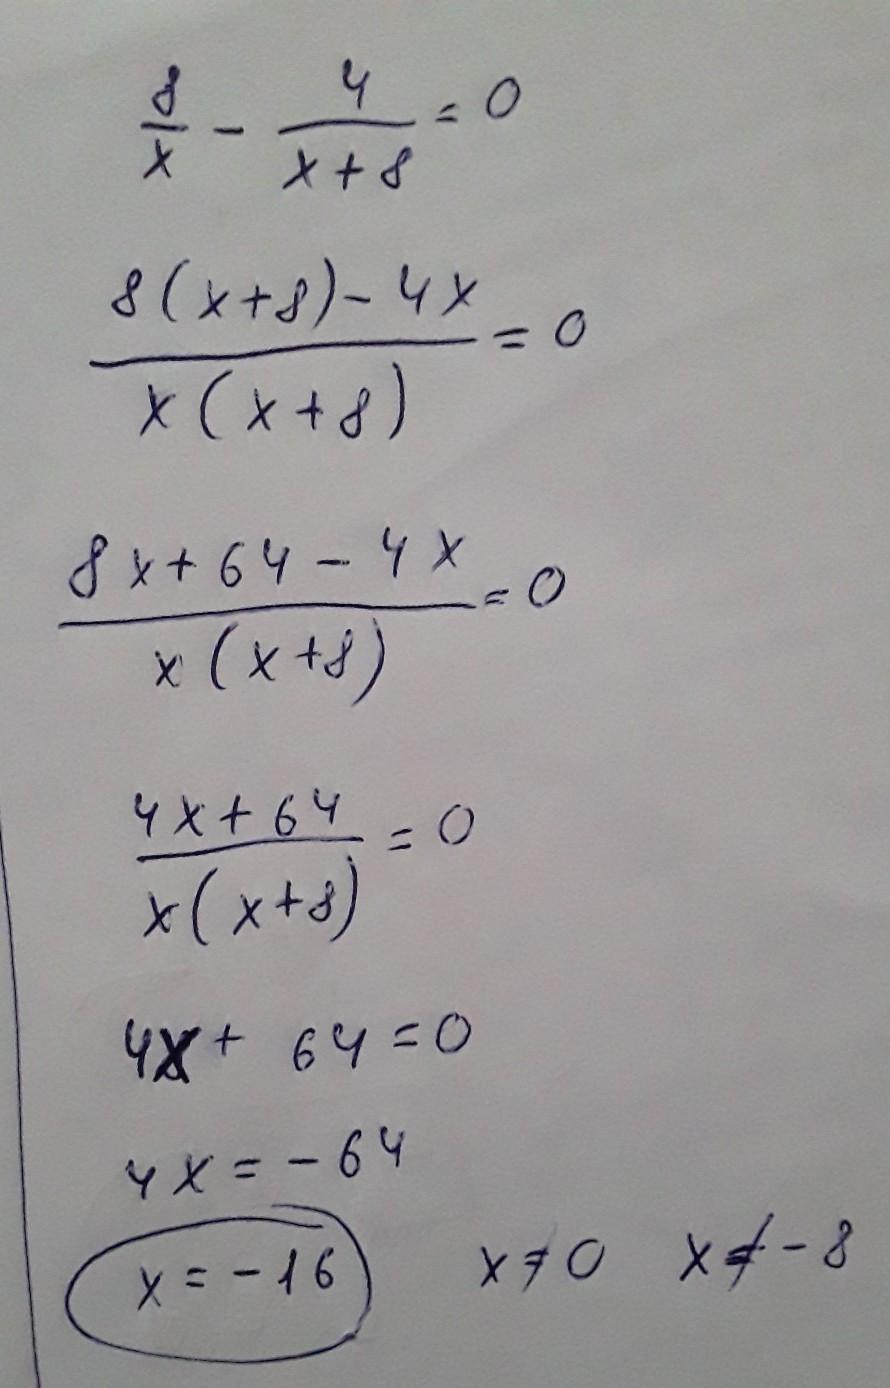 8/x - 4/(x+8) = 0
(8(x+8) - 4x)/(x(x+8)) = 0
(8x + 64 - 4x)/(x(x+8)) = 0
(4x + 64)/(x(x+8)) = 0
4x + 64 = 0
4x = -64
x = -16 x ≠ 0 x ≠ -8